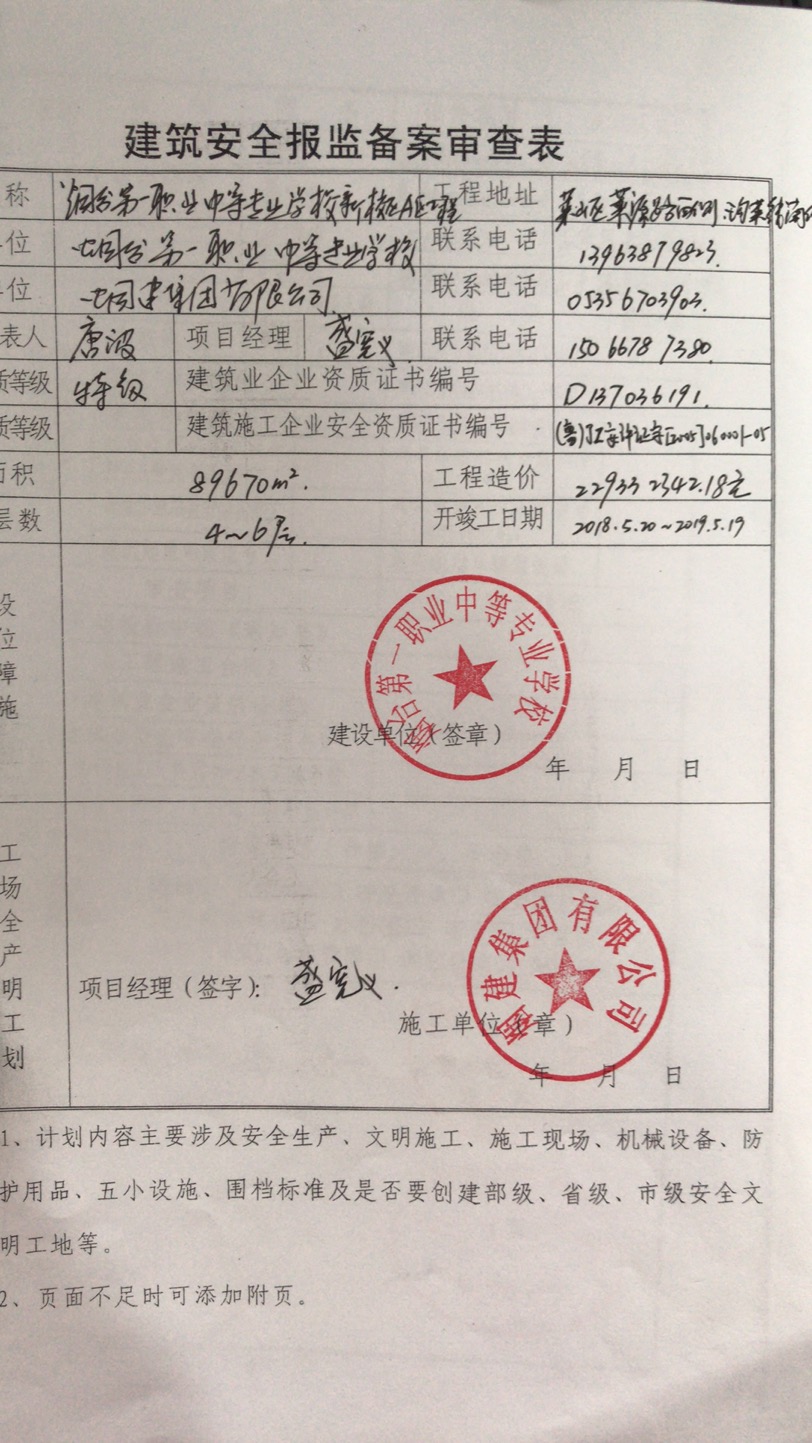 建筑安全报监备案审查表
称 烟台第一职业中等专业学校新校区A区工程 工程地址 莱山区莱源路西侧
位 烟台第一职业中等专业学校 联系电话 13963879823.
位 烟建集团有限公司 联系电话 05356703903.
表人 唐波 项目经理 盛宪义 联系电话 15066787380.
质等级 特级 建筑业企业资质证书编号 D137036191.
质等级 建筑施工企业安全资质证书编号 (鲁)JZ安许证字[2005]060001-05
面积 89670m². 工程造价 229332342.18元
层数 4~6层. 开竣工日期 2018.5.20~2019.5.19
设
位
障
施
烟台第一职业中等专业学校
建设单位(签章)
年 月 日
工
场
全
产
明
工
划
烟建集团有限公司
项目经理(签字): 盛宪义.
施工单位(章)
年 月 日
1、计划内容主要涉及安全生产、文明施工、施工现场、机械设备、防
护用品、五小设施、围档标准及是否要创建部级、省级、市级安全文
明工地等。
2、页面不足时可添加附页。